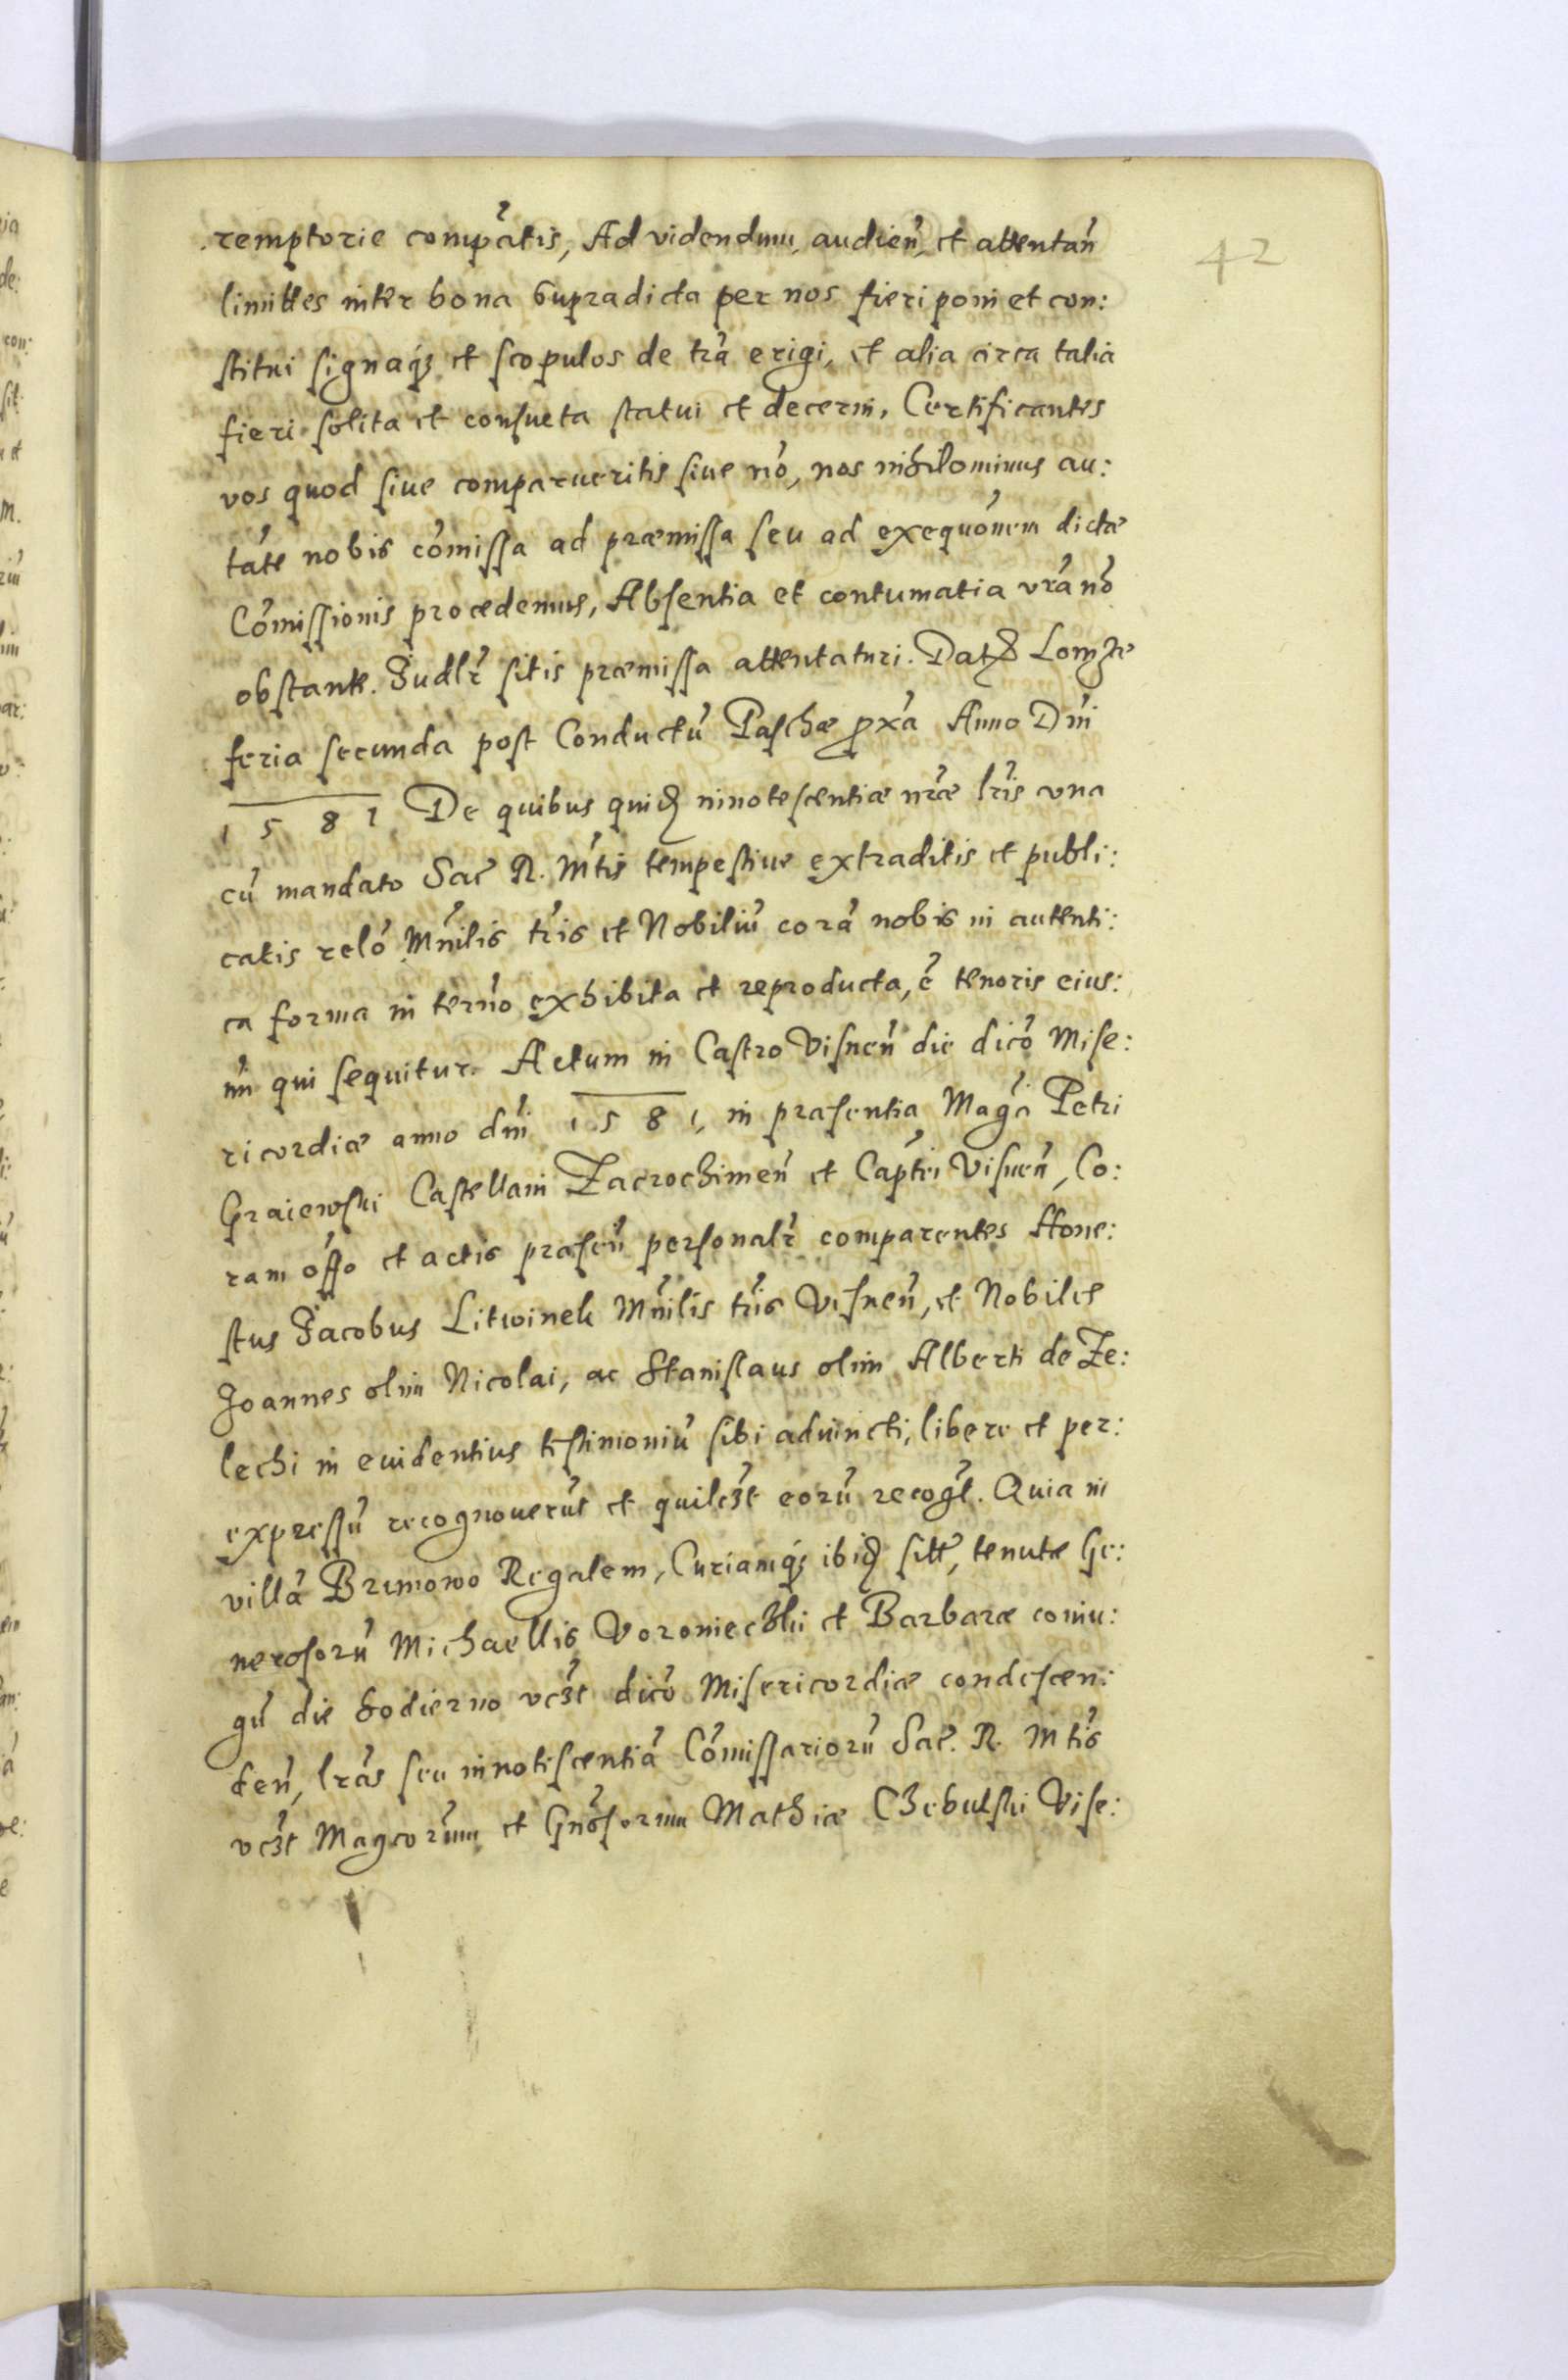 42
remptorie compa͠tis, Ad videndum, audien̄, et attentan̄
limittes inter bona supradicta per nos fieri poni et con:
stitui signaq₃ et scopulos de tr̄a erigi, et alia circa talia
fieri solita et consueta statui et decerni, Certificantes
vos quod siue comparueritis siue nō, nos nihilominus au:
tāte nobis cōmissa ad præmissa seu ad exequōnem dictæ
Cōmissionis procedemus, Absentia et contumatia vr̄a nō
obstante. Judlr̄ sitis præmissa attentaturi. Dat Lomzæ
feria secunda post Conductū Paschæ px̄a Anno Dn̄i
1581 De quibus quid innotescentiæ nr̄æ lr̄is una
cū mandato Sac̄ R. Mt̄is tempestiue extraditis et publi:
catis relō Mn̄ilis tr̄is et Nobiliū corā nobis in autenti:
ca forma in tern̄o exhibita et reproducta, ē tenoris eius:
m̄ qui sequitur. Actum in Castro Visnen̄ die dicō Mise:
ricordiæ anno dn̄i 1581, in præsentia Magc̄i Petri
Graiewski Castellani Zacrochimen̄ et Capt̄ei Visnen̄, Co:
ram offō et actis præsen̄ personalr̄ comparentes Hone:
stus Jacobus Litwinek Mn̄ilis tr̄is Visnen̄, et Nobiles
Joannes olim Nicolai, ac Stanislaus olim Alberti de Ze:
lechi in euidentius testimoniū sibi adiuncti, libere et per:
expressū recognouerūt et quilꝫt eorū recogt̄. Quia in
villā Brzmowo Regalem, Curiamq₃ ibid sitt, tenutæ Ge:
nerosorū Michaellis Voronieczki et Barbaræ coniu:
gū die hodierno vcꝫt dicō Misericordiæ condescen:
den̄, lr̄as seu innotiscentiā Cōmissariorū Sac̄. R. Mt̄is
vcꝫt Magcorūm et Gn̄osorum Mathiæ Chebutski Vise: